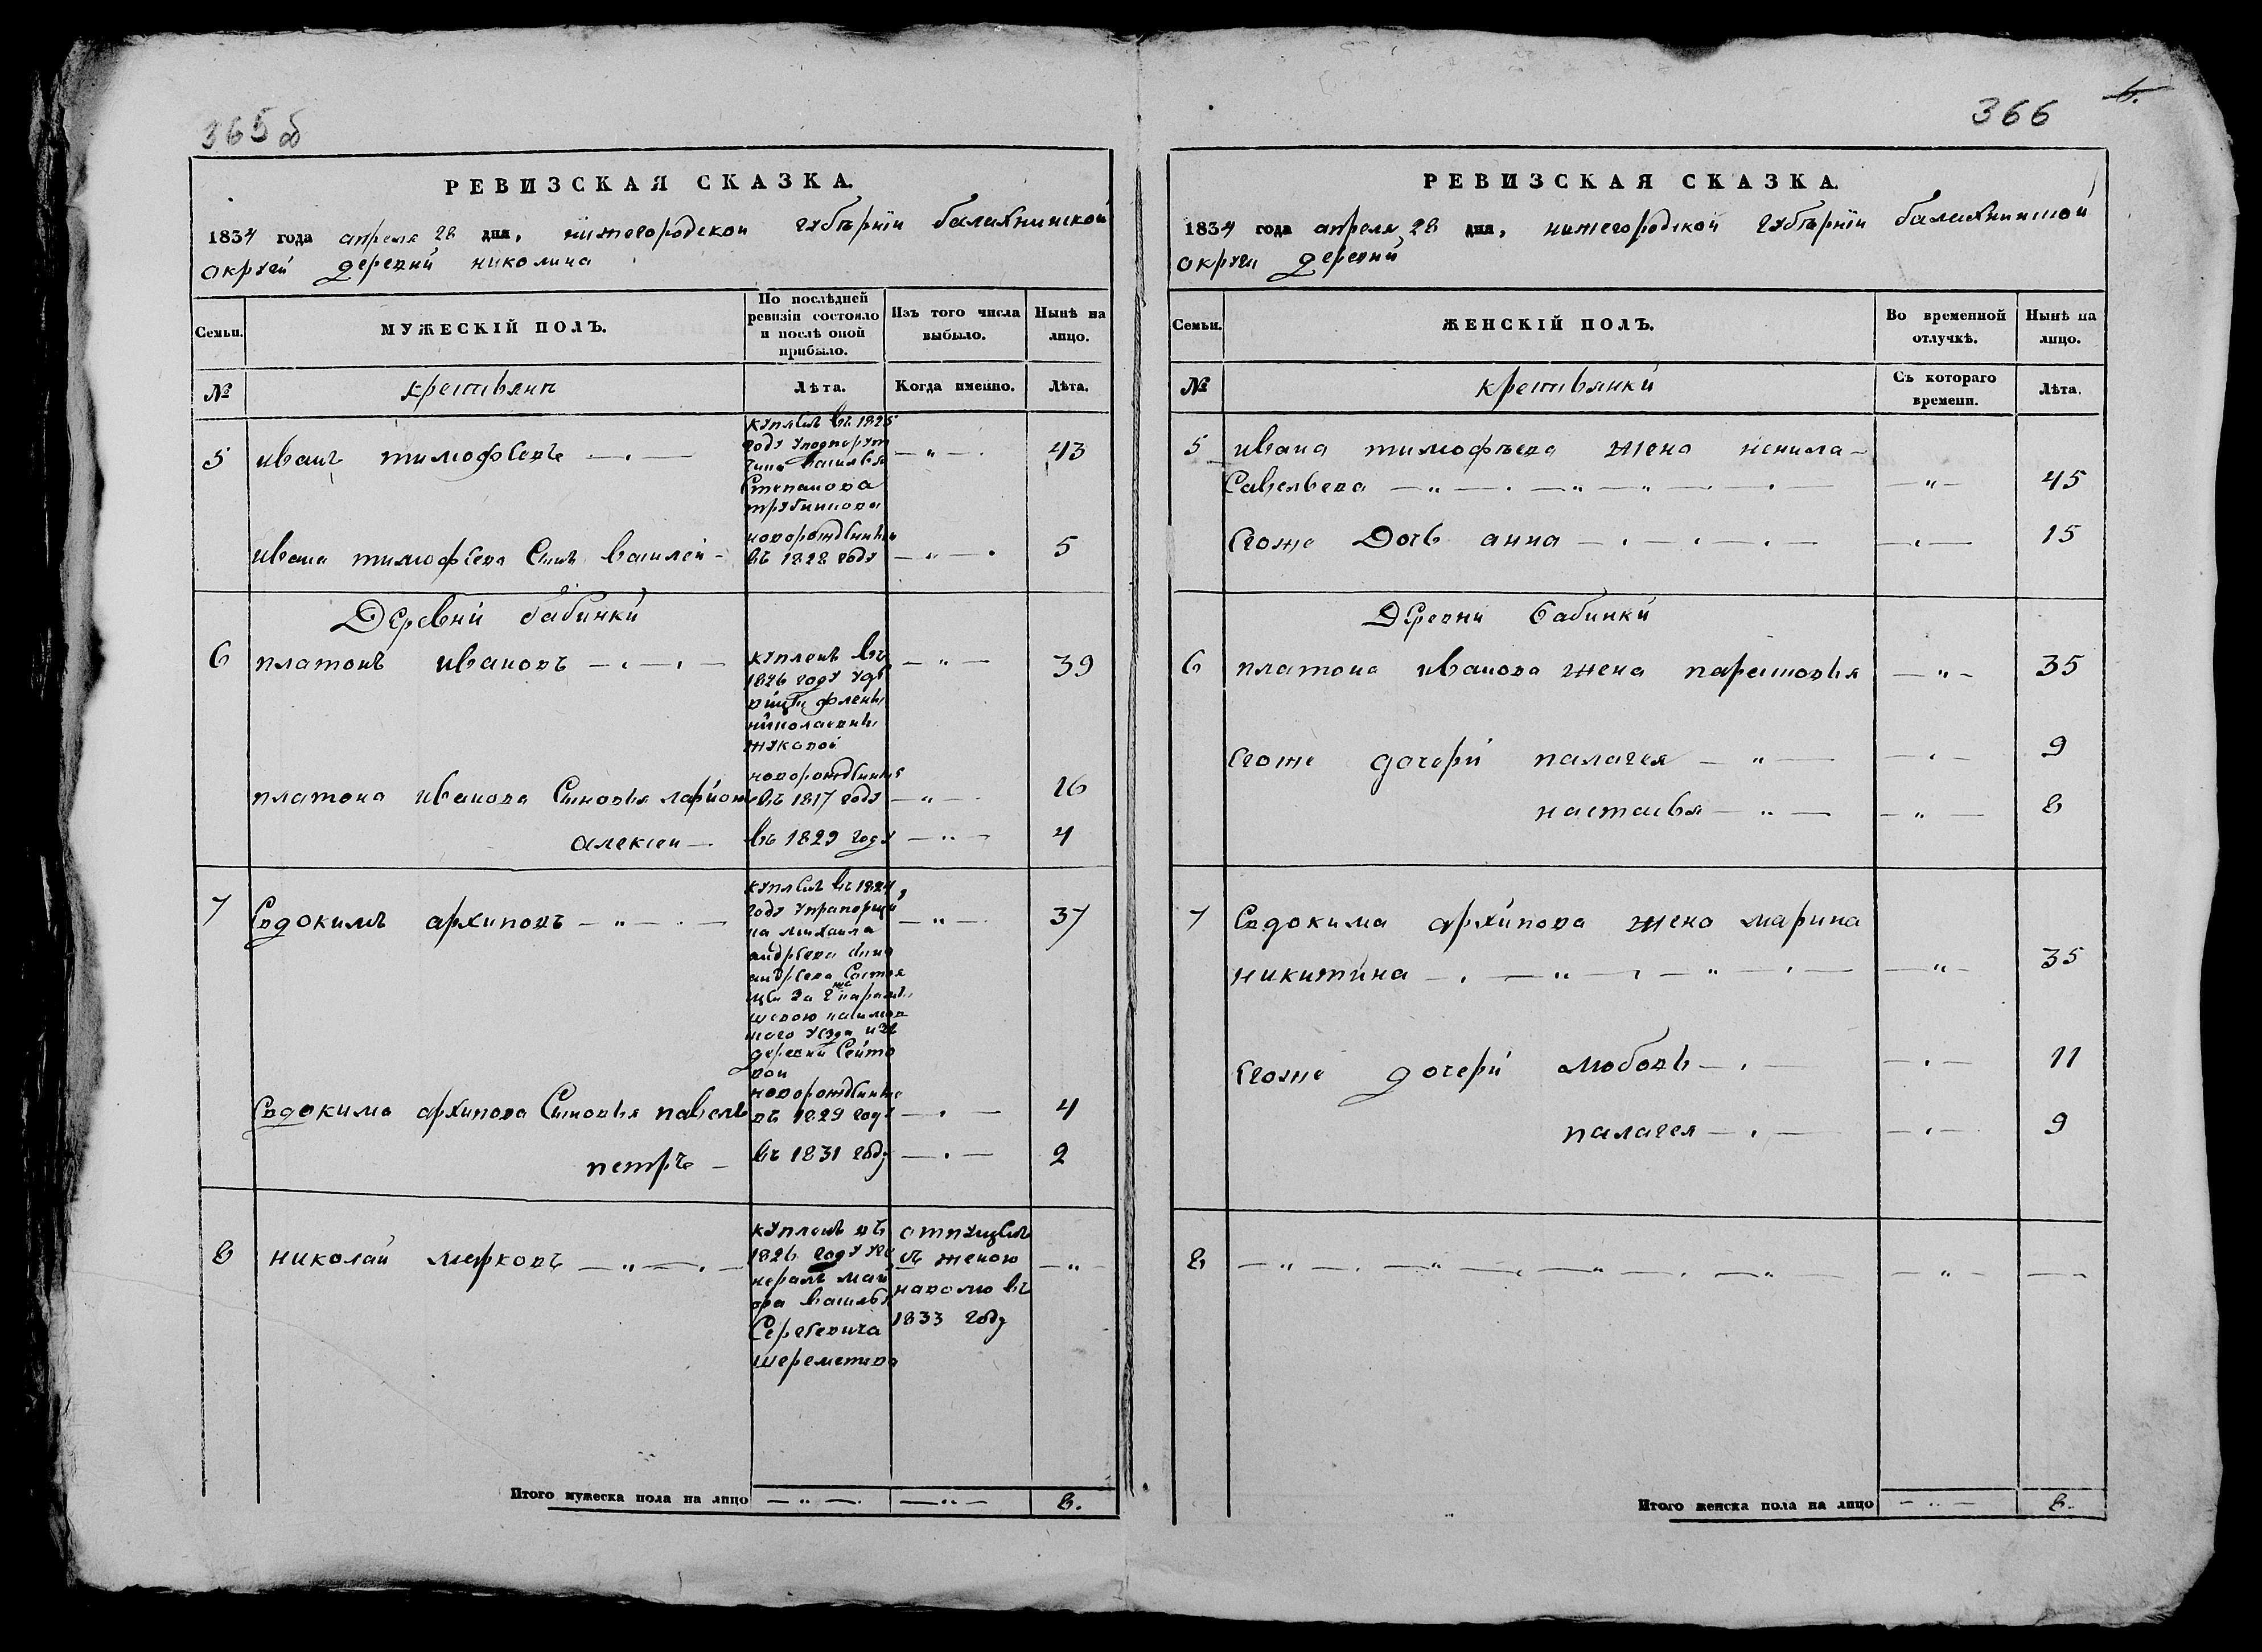 365 об
РЕВИЗСКАЯ СКАЗКА.
1834 года апреля 28 дня, нижегородской губѣрніи балахнинской
округи деревни николина
Семьи.
МУЖЕСКІЙ ПОЛЪ.
По послѣдней
ревизіи состояло
и послѣ оной
прибыло.
Изъ того числа
выбыло.
Нынѣ на
лицо.
№
крестьянъ
Лѣта.
Когда именно.
Лѣта.
5
иванъ тимофеевъ
купленъ въ 1825
году уподпорут
чика василья
Степанова
трубникова
— „ —
43
ивана тимофеева Сынъ василей
новорожденный
въ 1828 году
— „ —
5
Деревни бабинки
6
платонъ ивановъ
купленъ въ
1826 году удѣ
вицы флены
николаевны
жуковой
— „ —
39
платона иванова Сыновья ларион
новорожденные
въ 1817 году
— „ —
16
алексеи
въ 1829 году
— „ —
4
7
Евдокимъ архиповъ
купленъ въ 1824
году упрапорщи
ка михаила
андреева сына
андреева Состоя
ща за
деревни
— „ —
37
Евдокима архипова Сыновья павелъ
новорожденные
въ 1829 году
4
петръ
въ 1831 году
2
8
николаи марковъ
купленъ въ
1826 году уге
нералъ маи
ора василья
Сергеевича
шереметева
отпущенъ
съ женою
наволю въ
1833 году
— „
Итого мужеска пола на лицо — „ — — „ — 8.
366
6.
РЕВИЗСКАЯ СКАЗКА.
1834 года апреля 28 дня, нижегородской губѣрніи балахнинской
округи деревни
Семьи.
ЖЕНСКІЙ ПОЛЪ.
Во временной
отлучкѣ.
Нынѣ на
лицо.
№
крестьянки
Съ котораго
времени.
Лѣта.
5 ивана тимофѣева жена ненила
Савельева — „ — 45
Егоже Дочь анна 15
Деревни бабинки
6 платона иванова жена парасковья — „ — 35
Егоже дочери палагея — „ — 9
настасья — „ — 8
7 Евдокима архипова жена марина
никитина — „ — 35
Егоже дочери любовь 11
палагея 9
8 — „ — „ — „ — „ —
Итого женска пола на лицо — „ — 8.